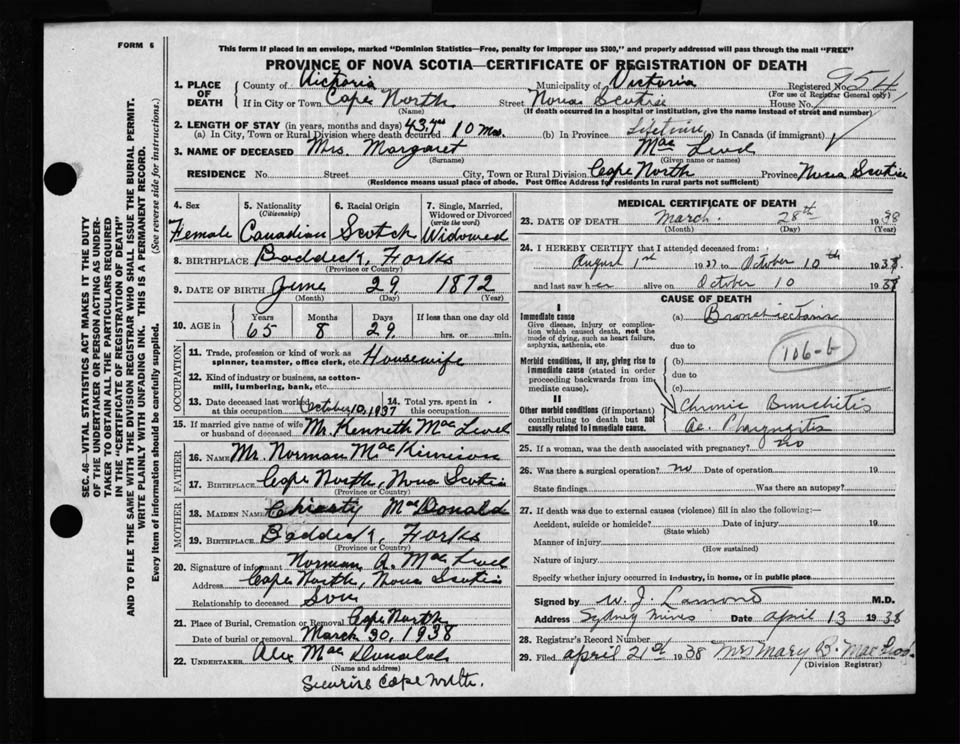 FORM 6
This form if placed in an envelope, marked "Dominion Statistics—Free, penalty for improper use $300," and properly addressed will pass through the mail "FREE"
PROVINCE OF NOVA SCOTIA—CERTIFICATE OF REGISTRATION OF DEATH
SEC. 46—VITAL STATISTICS ACT MAKES IT THE DUTY
OF THE UNDERTAKER OR PERSON ACTING AS UNDER-
TAKER TO OBTAIN ALL THE PARTICULARS REQUIRED
IN THE "CERTIFICATE OF REGISTRATION OF DEATH"
AND TO FILE THE SAME WITH THE DIVISION REGISTRAR WHO SHALL ISSUE THE BURIAL PERMIT.
WRITE PLAINLY WITH UNFADING INK. THIS IS A PERMANENT RECORD.
Every item of information should be carefully supplied. (See reverse side for instructions.)
1. PLACE OF DEATH County of Victoria Municipality of Victoria Registered No. 954
(For use of Registrar General only)
If in City or Town Cape North Street Nova Scotia House No.
(Name) (If death occurred in a hospital or institution, give the name instead of street and number)
2. LENGTH OF STAY (in years, months and days) 43 yrs 10 Mos.
(a) In City, Town or Rural Division where death occurred (b) In Province Lifetime (c) In Canada (if immigrant)
3. NAME OF DECEASED Mrs. Margaret Mac Leod
(Surname) (Given name or names)
RESIDENCE No. Street City, Town or Rural Division Cape North Province Nova Scotia
(Residence means usual place of abode. Post Office Address for residents in rural parts not sufficient)
4. Sex Female
5. Nationality (Citizenship) Canadian
6. Racial Origin Scotch
7. Single, Married, Widowed or Divorced (write the word) Widowed
8. BIRTHPLACE Baddeck, Forks
(Province or Country)
9. DATE OF BIRTH June 29 1872
(Month) (Day) (Year)
10. AGE in Years Months Days If less than one day old
65 8 29 hrs. or min.
OCCUPATION
11. Trade, profession or kind of work as spinner, teamster, office clerk, etc. Housewife
12. Kind of industry or business, as cotton-mill, lumbering, bank, etc.
13. Date deceased last worked at this occupation October 10, 1937
14. Total yrs. spent in this occupation
15. If married give name of wife or husband of deceased Mr. Kenneth Mac Leod
FATHER
16. NAME Mr. Norman MacKinnon
17. BIRTHPLACE Cape North, Nova Scotia
(Province or Country)
MOTHER
18. MAIDEN NAME Christy MacDonald
19. BIRTHPLACE Baddeck, Forks
(Province or Country)
20. Signature of informant Norman A. Mac Leod
Address Cape North, Nova Scotia
Relationship to deceased Son
21. Place of Burial, Cremation or Removal Cape North
Date of burial or removal March 30, 1938
22. UNDERTAKER Alex Mac Donald
(Name and address)
Cape North.
MEDICAL CERTIFICATE OF DEATH
23. DATE OF DEATH March 28th 1938
(Month) (Day) (Year)
24. I HEREBY CERTIFY that I attended deceased from:
August 1st 1937 to October 10th 1937.
and last saw her alive on October 10 1937
CAUSE OF DEATH
I
Immediate cause
Give disease, injury or complication which caused death, not the mode of dying, such as heart failure, asphyxia, asthenia, etc.
(a) Bronchiectasis
due to
106-b
Morbid conditions, if any, giving rise to immediate cause (stated in order proceeding backwards from immediate cause).
(b)
due to
(c)
II
Other morbid conditions (if important) contributing to death but not causally related to immediate cause.
Chronic Bronchitis
Ac. Pharyngitis
25. If a woman, was the death associated with pregnancy? no
26. Was there a surgical operation? no Date of operation 19
State findings Was there an autopsy?
27. If death was due to external causes (violence) fill in also the following:—
Accident, suicide or homicide? Date of injury 19
(State which)
Manner of injury
(How sustained)
Nature of injury
Specify whether injury occurred in industry, in home, or in public place
Signed by W. J. Lamond M.D.
Address Sydney Mines Date April 13 1938
28. Registrar's Record Number
29. Filed April 21st 1938 Mrs Mary B. MacLeod
(Division Registrar)